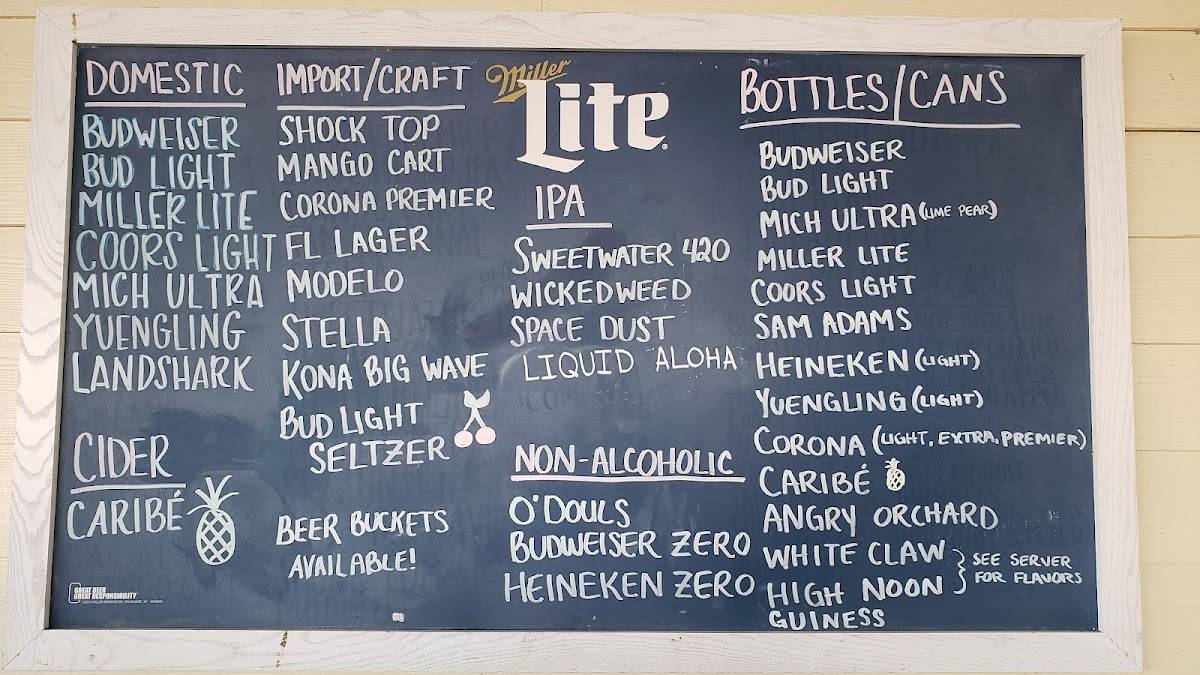 DOMESTIC
BUDWEISER
BUD LIGHT
MILLER LITE
COORS LIGHT
MICH ULTRA
YUENGLING
LANDSHARK
CIDER
CARIBÉ
GREAT BEER
GREAT RESPONSIBILITY
IMPORT/CRAFT
SHOCK TOP
MANGO CART
CORONA PREMIER
FL LAGER
MODELO
STELLA
KONA BIG WAVE
BUD LIGHT
SELTZER
BEER BUCKETS
AVAILABLE!
Miller
Lite
IPA
SWEETWATER 420
WICKEDWEED
SPACE DUST
LIQUID ALOHA
NON-ALCOHOLIC
O'DOULS
BUDWEISER ZERO
HEINEKEN ZERO
BOTTLES/CANS
BUDWEISER
BUD LIGHT
MICH ULTRA (LIME PEAR)
MILLER LITE
COORS LIGHT
SAM ADAMS
HEINEKEN (LIGHT)
YUENGLING (LIGHT)
CORONA (LIGHT, EXTRA, PREMIER)
CARIBÉ
ANGRY ORCHARD
WHITE CLAW
HIGH NOON
SEE SERVER
FOR FLAVORS
GUINESS